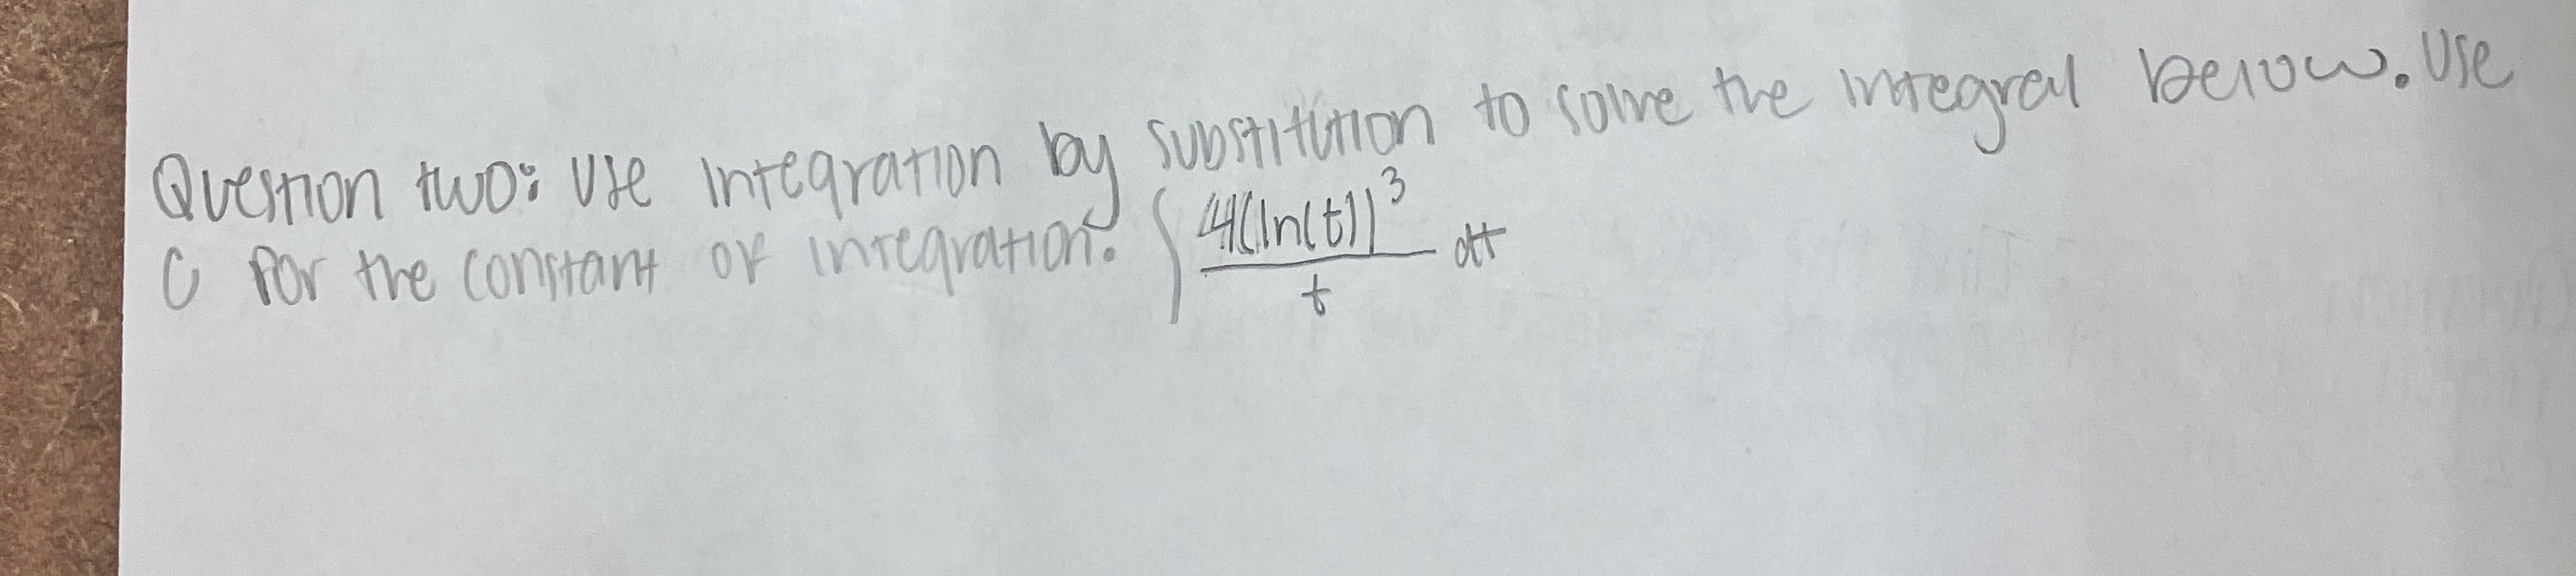 Question two: Use integration by substitution to solve the integral below. Use
C for the constant of integration. ∫ 4(ln(t))³/t dt